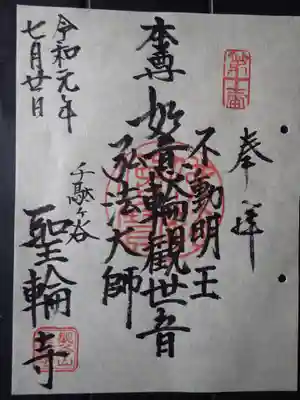 奉拝
第十番
不動明王
本尊 如意輪観世音
弘法大師
千駄ヶ谷
聖輪寺
令和元年
七月廿日